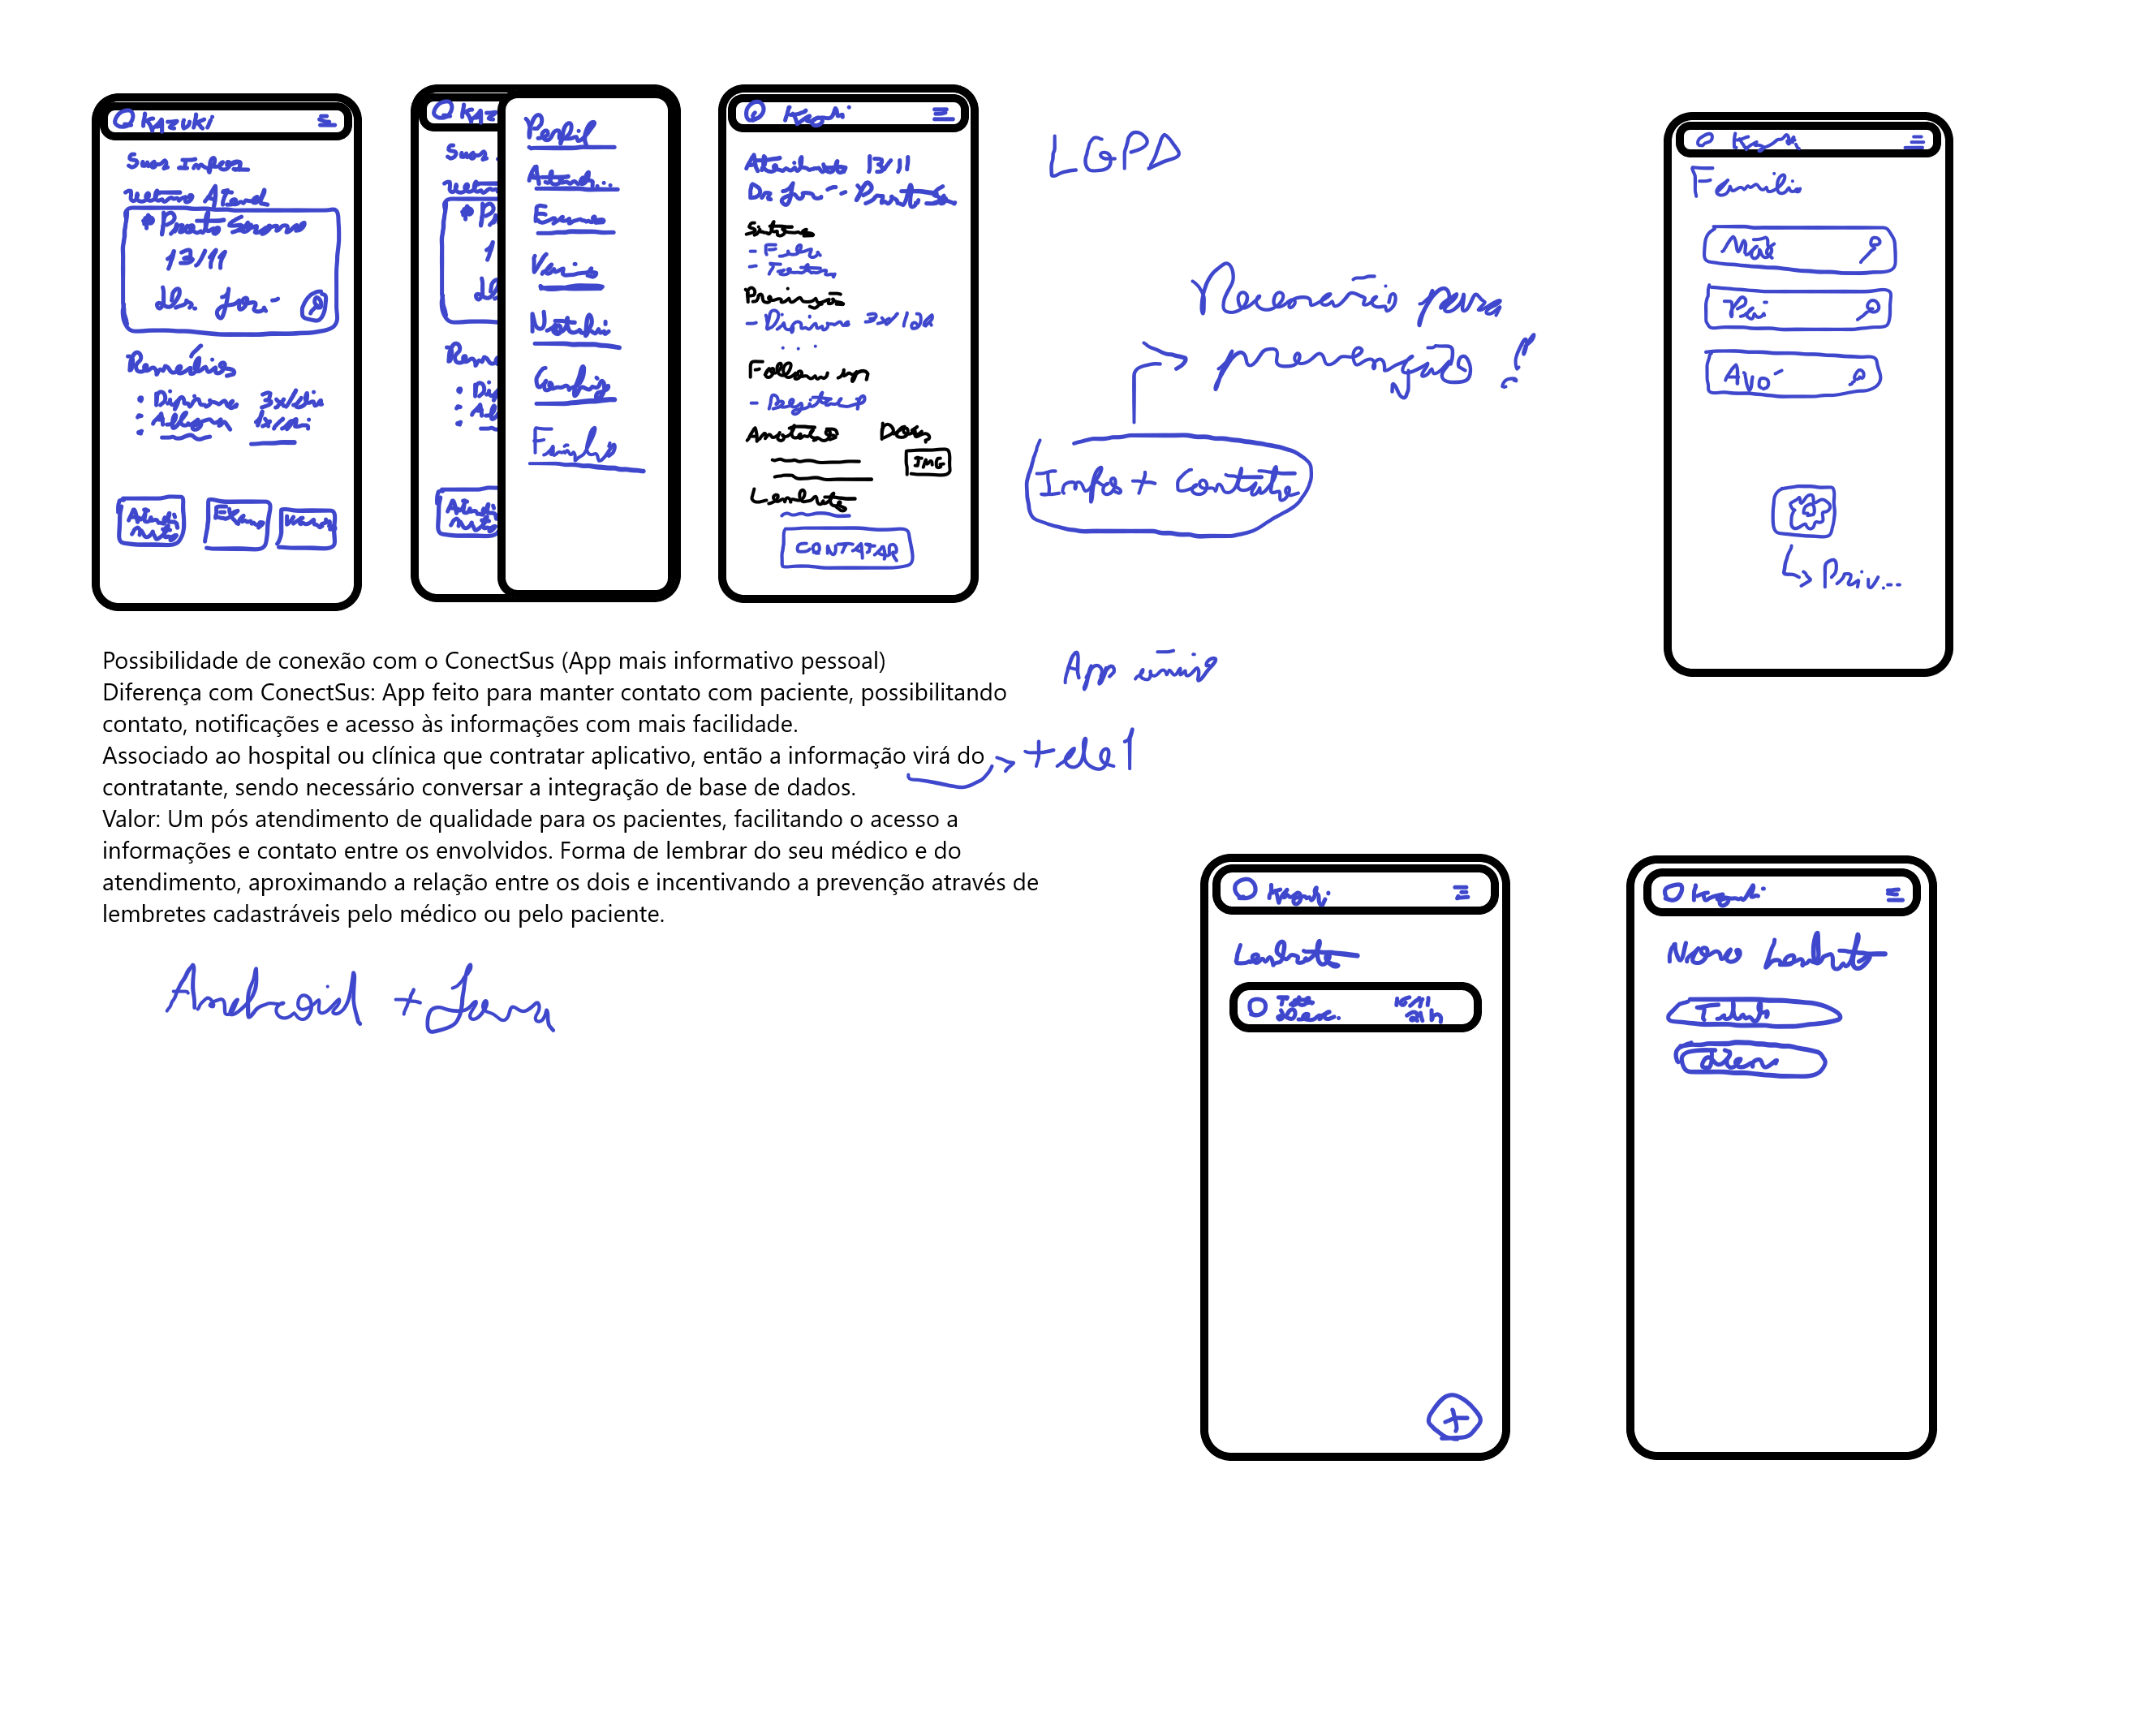 KAZUKI
Suas Infos
Último Atend
Pronto Socorro
13/11
Dr. José
Remédios
Dipirona 3x/dia
Atendi
mento
Exame
KAZ
Suas
Perfil
Atend...
Exames
Notifi
Config
Família
Atendimento 13/11
Dr. José - Pronto So
Sintomas
- Febre
Prescrição
- Dipirona 3x/dia
...
Follow up
Anotações Docs
IMG
Lembrete
CONTATAR
LGPD
Necessário para
prevenção!
Infos + Contato
Família
Mãe
Pai
Avó
Priv...
Possibilidade de conexão com o ConectSus (App mais informativo pessoal)
Diferença com ConectSus: App feito para manter contato com paciente, possibilitando
contato, notificações e acesso às informações com mais facilidade.
Associado ao hospital ou clínica que contratar aplicativo, então a informação virá do
contratante, sendo necessário conversar a integração de base de dados.
Valor: Um pós atendimento de qualidade para os pacientes, facilitando o acesso a
informações e contato entre os envolvidos. Forma de lembrar do seu médico e do
atendimento, aproximando a relação entre os dois e incentivando a prevenção através de
lembretes cadastráveis pelo médico ou pelo paciente.
App único
+ de 1
Android + Java
Kazuki
Lembrete
+
Kazuki
Novo Lembrete
Título